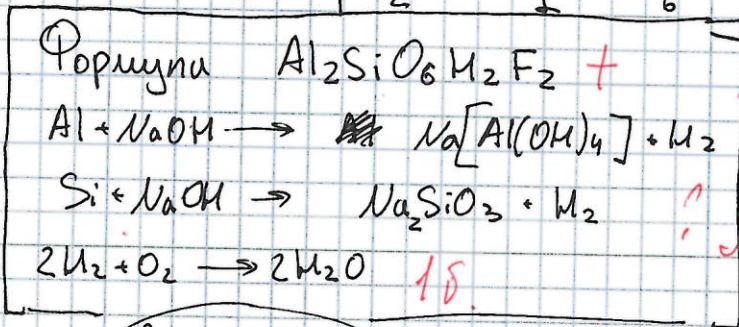 Формула Al₂SiO₆H₂F₂ +
Al + NaOH → Na[Al(OH)₄] + H₂
Si + NaOH → Na₂SiO₃ + H₂ ?
2H₂ + O₂ → 2H₂O 1б.